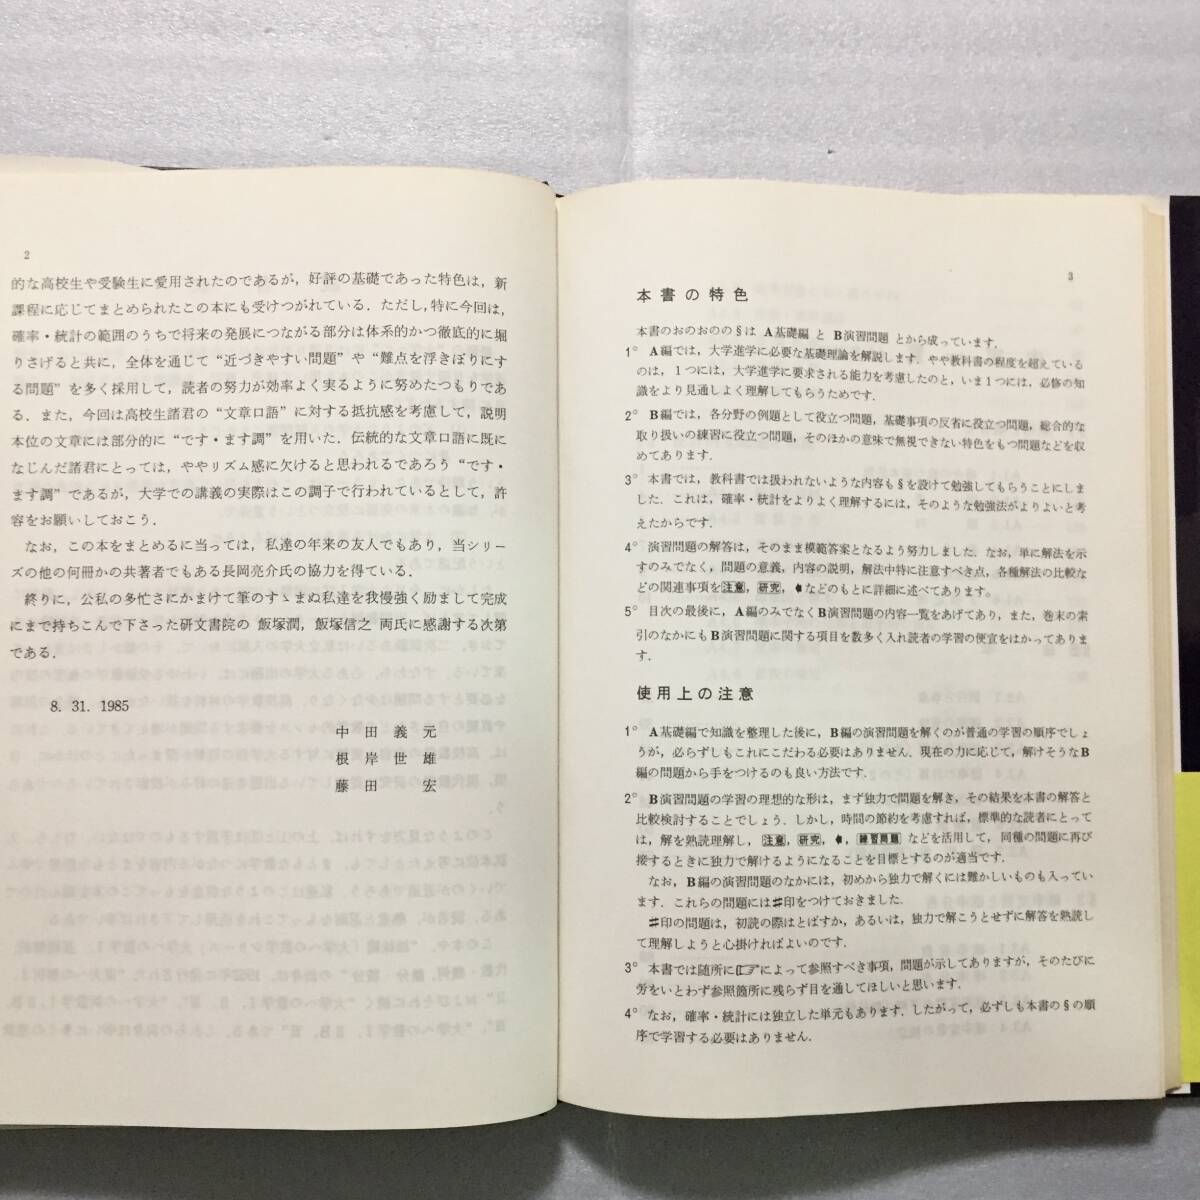 2
的な高校生や受験生に愛用されたのであるが，好評の基礎であった特色は，新
課程に応じてまとめられたこの本にも受けつがれている．ただし，特に今回は，
確率・統計の範囲のうちで将来の発展につながる部分は体系的かつ徹底的に堀
りさげると共に，全体を通じて“近づきやすい問題”や“難点を浮きぼりにす
る問題”を多く採用して，読者の努力が効率よく実るように努めたつもりであ
る．また，今回は高校生諸君の“文章口語”に対する抵抗感を考慮して，説明
本位の文章には部分的に“です・ます調”を用いた．伝統的な文章口語に既に
なじんだ諸君にとっては，ややリズム感に欠けると思われるであろう“です・
ます調”であるが，大学での講義の実際はこの調子で行われているとして，許
容をお願いしておこう．
なお，この本をまとめるに当っては，私達の年来の友人でもあり，当シリー
ズの他の何冊かの共著者でもある長岡亮介氏の協力を得ている．
終りに，公私の多忙さにかまけて筆のすゝまぬ私達を我慢強く励まして完成
にまで持ちこんで下さった研文書院の 飯塚潤，飯塚信之 両氏に感謝する次第
である．
8. 31. 1985
中田義元
根岸世雄
藤田宏
3
本書の特色
本書のおのおのの§は A基礎編 と B演習問題 とから成っています．
1° A編では，大学進学に必要な基礎理論を解説します．やや教科書の程度を超えている
のは，1つには，大学進学に要求される能力を考慮したのと，いま1つには，必修の知
識をより見通しよく理解してもらうためです．
2° B編では，各分野の例題として役立つ問題，基礎事項の反省に役立つ問題，総合的な
取り扱いの練習に役立つ問題，そのほかの意味で無視できない特色をもつ問題などを収
めてあります．
3° 本書では，教科書では扱われないような内容も§を設けて勉強してもらうことにしま
した．これは，確率・統計をよりよく理解するには，そのような勉強法がよりよいと考
えたからです．
4° 演習問題の解答は，そのまま模範答案となるよう努力しました．なお，単に解法を示
すのみでなく，問題の意義，内容の説明，解法中特に注意すべき点，各種解法の比較な
どの関連事項を注意，研究，➧などのもとに詳細に述べてあります。
5° 目次の最後に，A編のみでなくB演習問題の内容一覧をあげてあり，また，巻末の索
引のなかにもB演習問題に関する項目を数多く入れ読者の学習の便宜をはかってありま
す．
使用上の注意
1° A基礎編で知識を整理した後に，B編の演習問題を解くのが普通の学習の順序でしょ
うが，必らずしもこれにこだわる必要はありません．現在の力に応じて，解けそうなB
編の問題から手をつけるのも良い方法です．
2° B演習問題の学習の理想的な形は，まず独力で問題を解き，その結果を本書の解答と
比較検討することでしょう．しかし，時間の節約を考慮すれば，標準的な読者にとって
は，解を熟読理解し，注意，研究，➧，練習問題 などを活用して，同種の問題に再び
接するときに独力で解けるようになることを目標とするのが適当です．
なお，B編の演習問題のなかには，初めから独力で解くには難かしいものも入ってい
ます．これらの問題には♯印をつけておきました．
♯印の問題は，初読の際はとばすか，あるいは，独力で解こうとせずに解答を熟読し
て理解しようと心掛ければよいのです．
3° 本書では随所に☞によって参照すべき事項，問題が示してありますが，そのたびに
労をいとわず参照箇所に残らず目を通してほしいと思います．
4° なお，確率・統計には独立した単元もあります．したがって，必ずしも本書の§の順
序で学習する必要はありません．